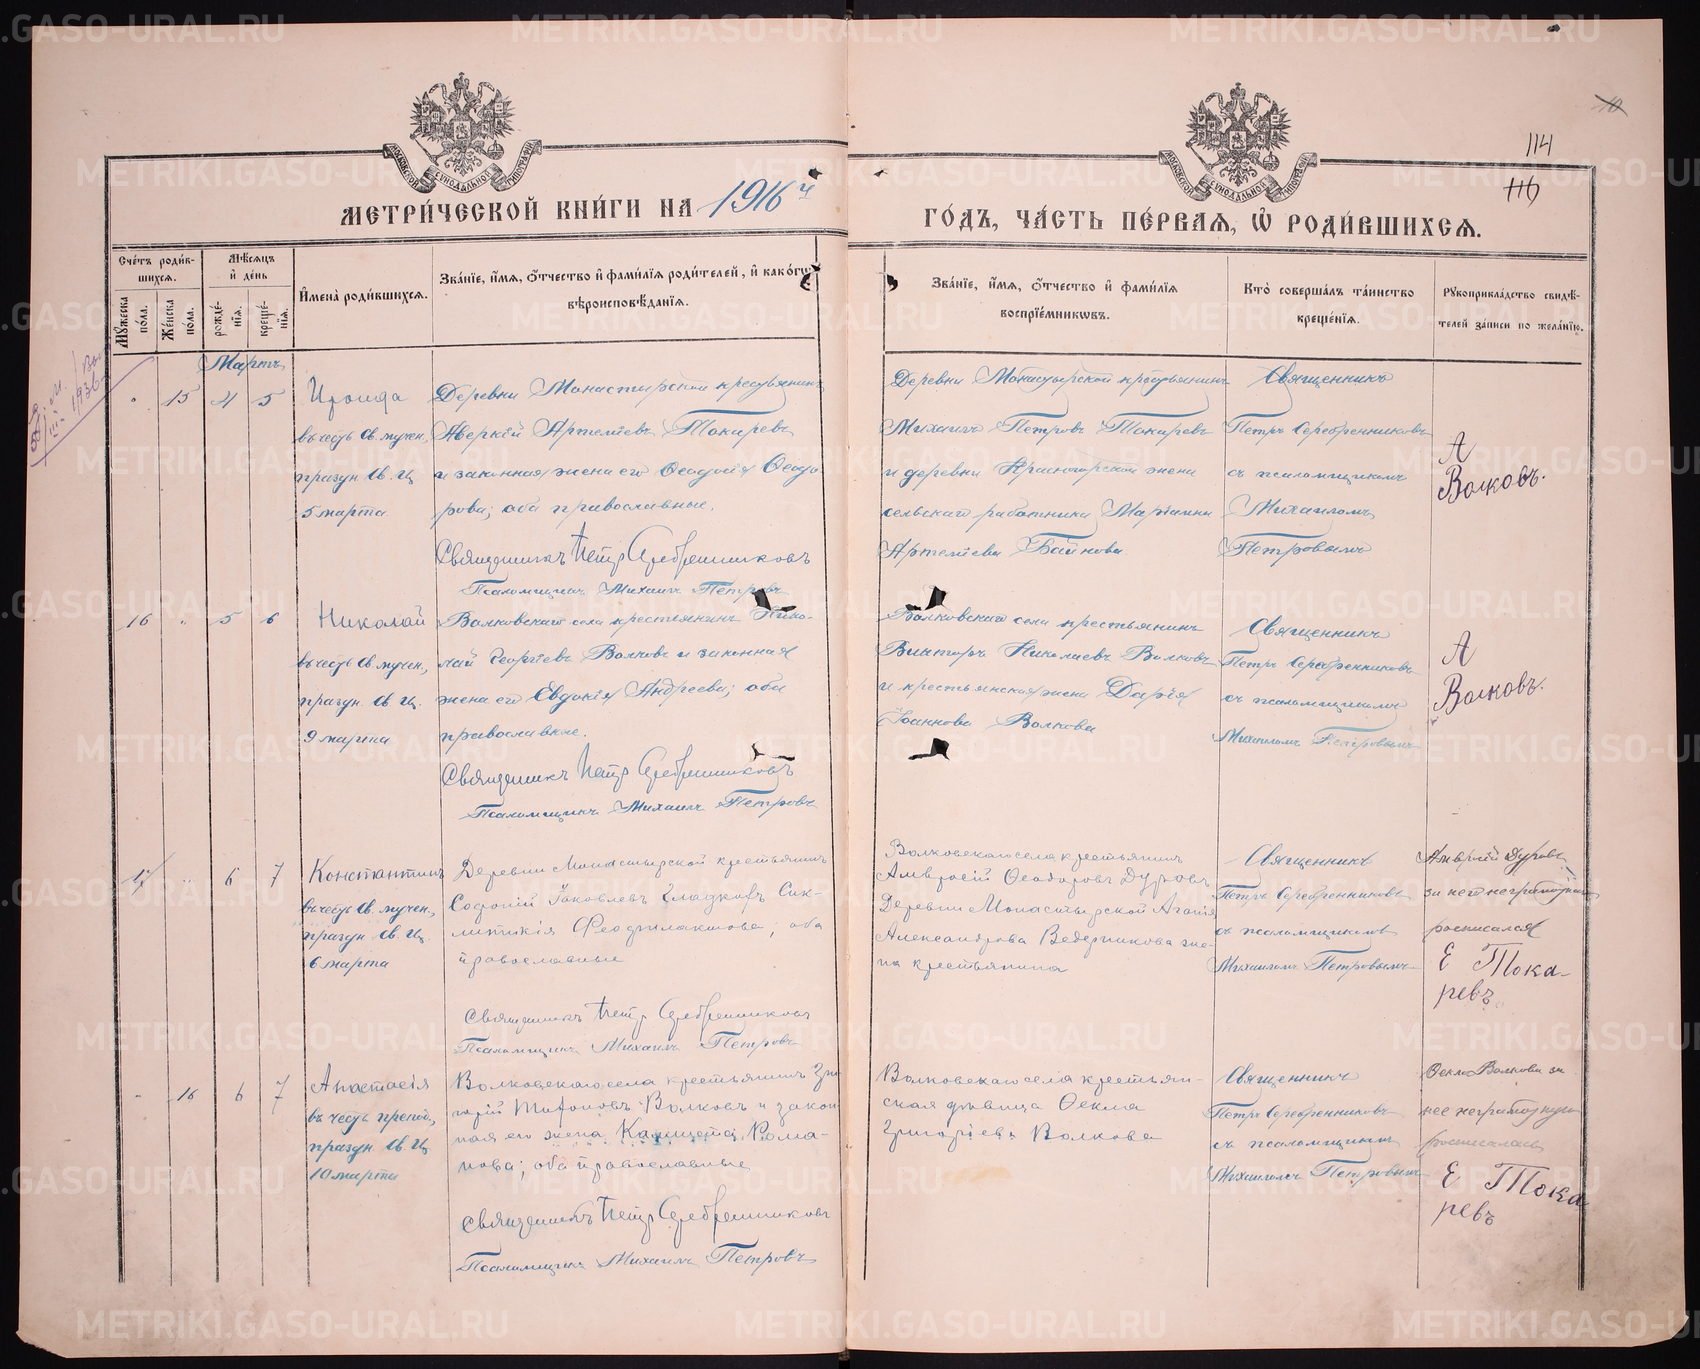 МЕТРИ́ЧЕСКОЙ КНИ́ГИ НА 1916й
ГО́ДЪ, ЧА́СТЬ ПЕ́РВАѦ, Ѽ РОДИ́ВШИХСѦ.
114
Сче́тъ роди́в-
шихсѧ.
Мѣ́сѧцъ
и҆ де́нь
Мꙋ́жеска по́ла.
Же́нска по́ла.
рожде́-
нїѧ.
креще́-
нїѧ.
И҆мена̀ роди́вшихсѧ.
Зва́нїе, и҆́мѧ, ѻ҆́тчество и҆ фами́лїѧ роди́телей, и҆ како́гѡ
вѣроисповѣ́данїѧ.
Зва́нїе, и҆́мѧ, ѻ҆́тчество и҆ фами́лїѧ
воспрїе́мникѡвъ.
Кто̀ соверша́лъ та́инство
креще́нїѧ.
Рꙋкоприкла́дство свидѣ́-
телей за́писи по жела́нїю.
Мартъ
15 4 5
Ираида
въ честь св. мучен.,
праздн. св. Ц.
5 марта
Деревни Монастырской крестьянинъ
Аверкій Артеміевъ Токаревъ
и законная жена его Ѳеодосія Ѳеодо
рова; оба православные.
Священникъ Петръ Серебренниковъ
Псаломщикъ Михаилъ Петровъ
Деревни Монастырской крестьянинъ
Михаилъ Петровъ Токаревъ
и деревни Красногорской жена
сельскаго работника Маріамна
Артеміева Байнова
Священникъ
Петръ Серебренниковъ
съ псаломщикомъ
Михаиломъ
Петровымъ
А
Волковъ.
16 5 6
Николай
въ честь св. мучен.,
праздн. св Ц.
9 марта
Волковскаго села крестьянинъ Нико-
лай Георгіевъ Волковъ и законная
жена его Евдокія Андреева; оба
православные.
Священникъ Петръ Серебренниковъ
Псаломщикъ Михаилъ Петровъ
Волковскаго села крестьянинъ
Викторъ Николаевъ Волковъ
и крестьянская жена Дарія
Іоаннова Волкова
Священникъ
Петръ Серебренниковъ
съ псаломщикомъ
Михаиломъ Петровымъ
А
Волковъ.
17 6 7
Константинъ
въ честь св. мучен.,
праздн. св. Ц.
6 марта
Деревни Монастырской крестьянинъ
Софоній Іаковлевъ Гладкихъ Син-
клитикія Феофилактова, оба
православные
Священникъ Петръ Серебренниковъ
Псаломщикъ Михаилъ Петровъ
Волковскаго села крестьянинъ
Амвросій Ѳеодоровъ Дуровъ
Деревни Монастырской Агапія
Александрова Ведерникова же-
на крестьянина
Священникъ
Петръ Серебренниковъ
съ псаломщикомъ
Михаиломъ Петровымъ
Амвросій Дуровъ
за него неграмотнаго
росписался
Е Тока-
ревъ
16 6 7
Анастасія
въ честь препод.,
праздн. св Ц
10 марта
Волковскаго села крестьянинъ Гри
горій Тихоновъ Волковъ и закон
ная его жена Рома-
нова; оба православные
Священникъ Петръ Серебренниковъ
Псаломщикъ Михаилъ Петровъ
Волковскаго села крестьян-
ская дѣвица Ѳекла
Григоріева Волкова
Священникъ
Петръ Серебренниковъ
съ псаломщикомъ
Михаиломъ Петровымъ
Ѳекла Волкова за
нее неграмотную
росписалась
Е Тока
ревъ
METRIKI.GASO-URAL.RU